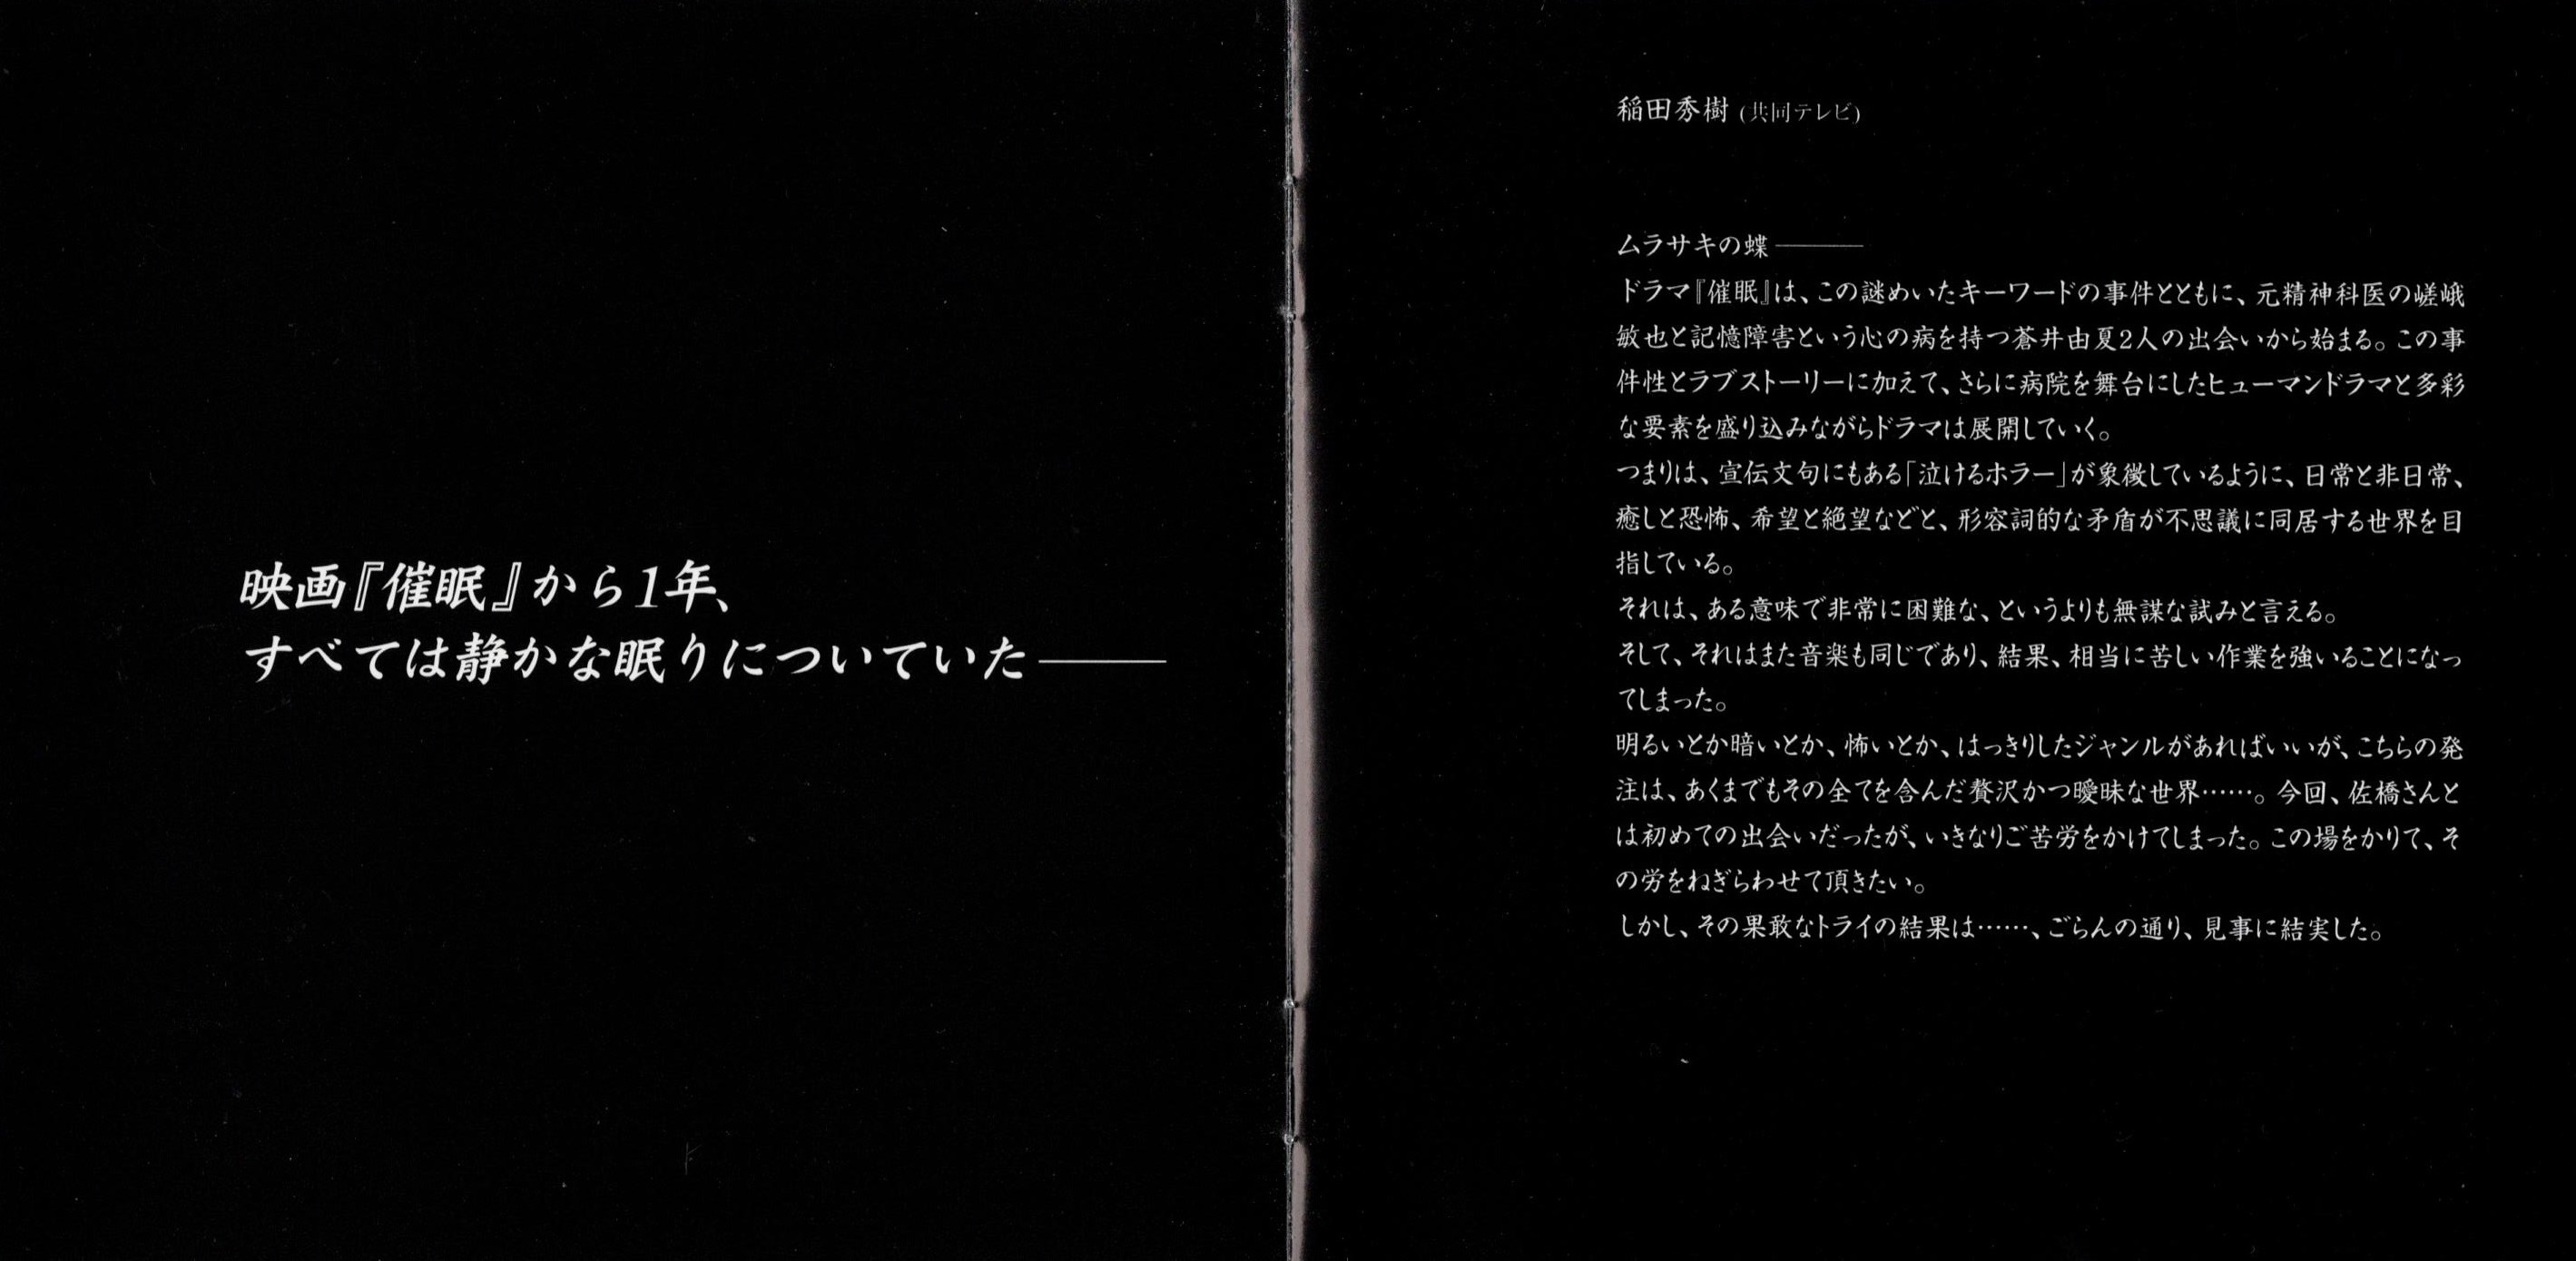 映画『催眠』から1年、
すべては静かな眠りについていた———
稲田秀樹 (共同テレビ)
ムラサキの蝶———
ドラマ『催眠』は、この謎めいたキーワードの事件とともに、元精神科医の嵯峨
敏也と記憶障害という心の病を持つ蒼井由夏2人の出会いから始まる。この事
件性とラブストーリーに加えて、さらに病院を舞台にしたヒューマンドラマと多彩
な要素を盛り込みながらドラマは展開していく。
つまりは、宣伝文句にもある「泣けるホラー」が象徴しているように、日常と非日常、
癒しと恐怖、希望と絶望などと、形容詞的な矛盾が不思議に同居する世界を目
指している。
それは、ある意味で非常に困難な、というよりも無謀な試みと言える。
そして、それはまた音楽も同じであり、結果、相当に苦しい作業を強いることになっ
てしまった。
明るいとか暗いとか、怖いとか、はっきりしたジャンルがあればいいが、こちらの発
注は、あくまでもその全てを含んだ贅沢かつ曖昧な世界……。今回、佐橋さんと
は初めての出会いだったが、いきなりご苦労をかけてしまった。この場をかりて、そ
の労をねぎらわせて頂きたい。
しかし、その果敢なトライの結果は……、ごらんの通り、見事に結実した。